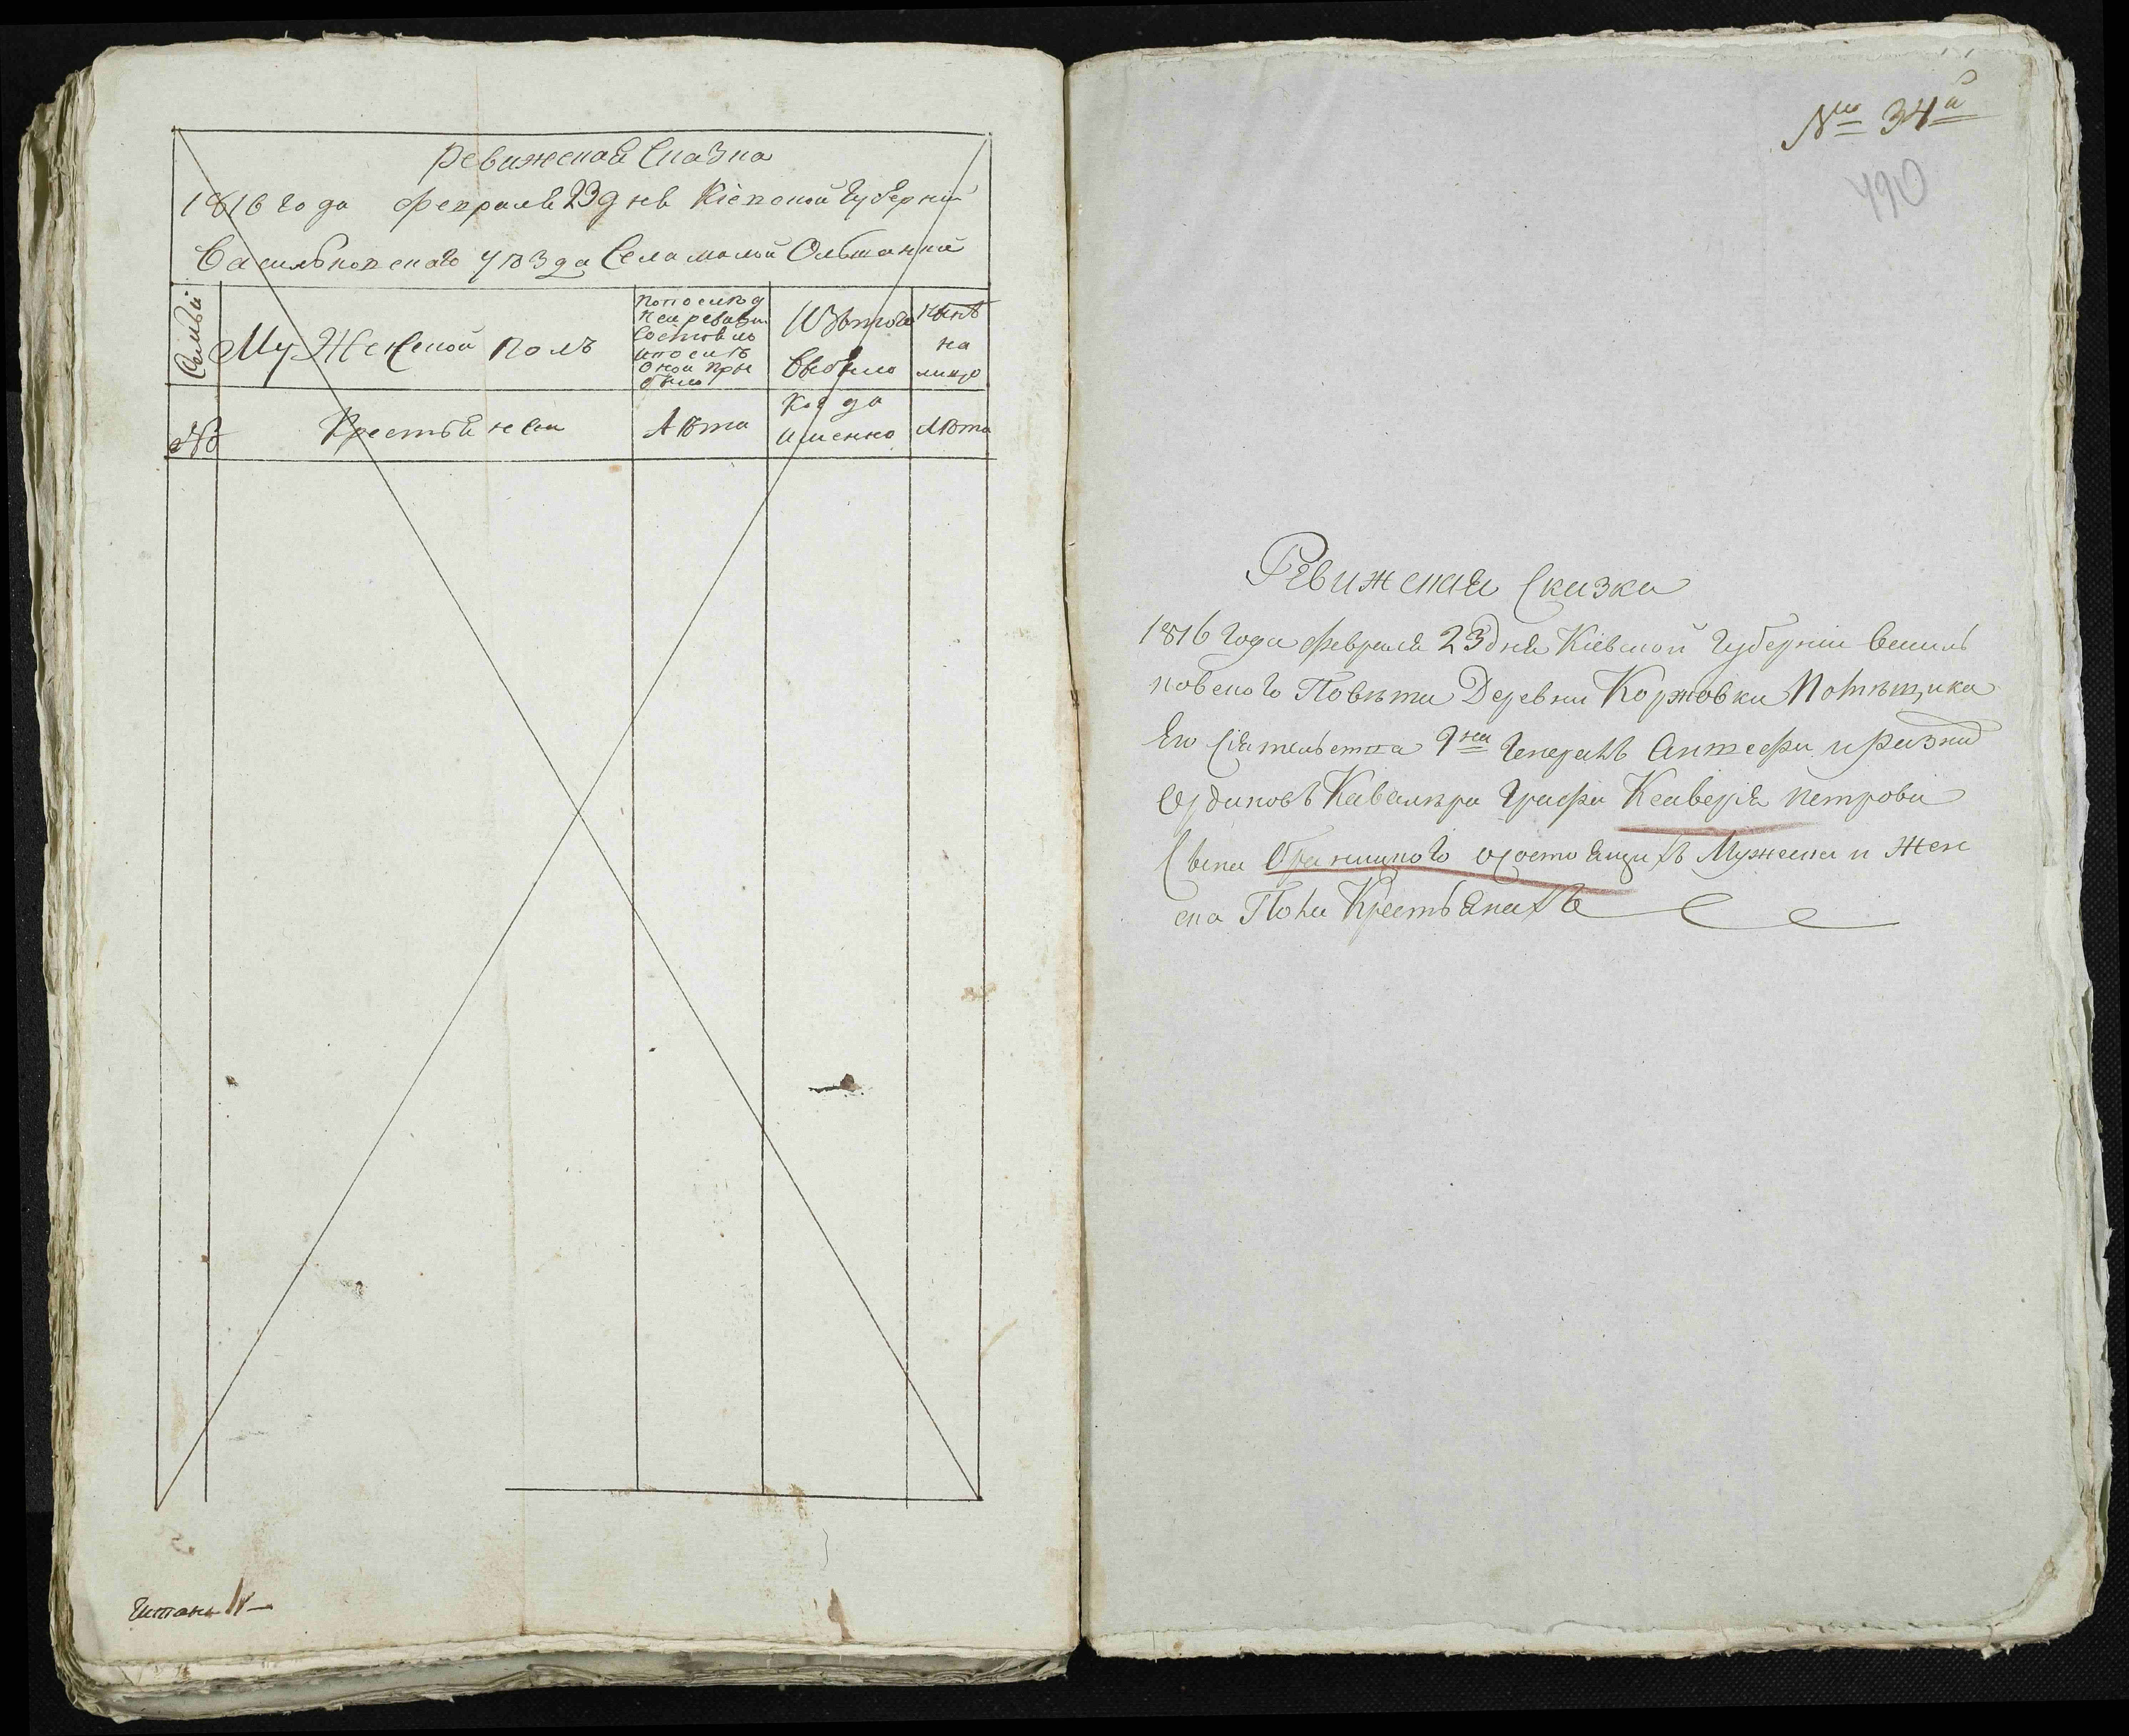 Ревижская Сказка
1816 года февраля 23 дня Кіевской Губерніи
Васильковского уѣзда Села малой Ольшанки
Семьи
Мужеской полъ
По послѣд
ней ревизіи
Состояло
и послѣ
Оной при
было
Изъ того
Выбыло
Нынѣ
на
лицо
№
Крестьяне
Лѣта
Когда
именно
Лѣта
№ 34й
490
Ревижская Сказка
1816 года февраля 23 дня Кіевской Губерніи Василь
ковского Повѣта Деревни Коржовки Помѣщика
Его Сіятельства Генералъ Аншефа и разных
Орденовъ Кавалѣра Графа Ксаверія Петрова
Сына Браницкого о состоящихъ Мужеска и Жен
ска Пола Крестьянахъ